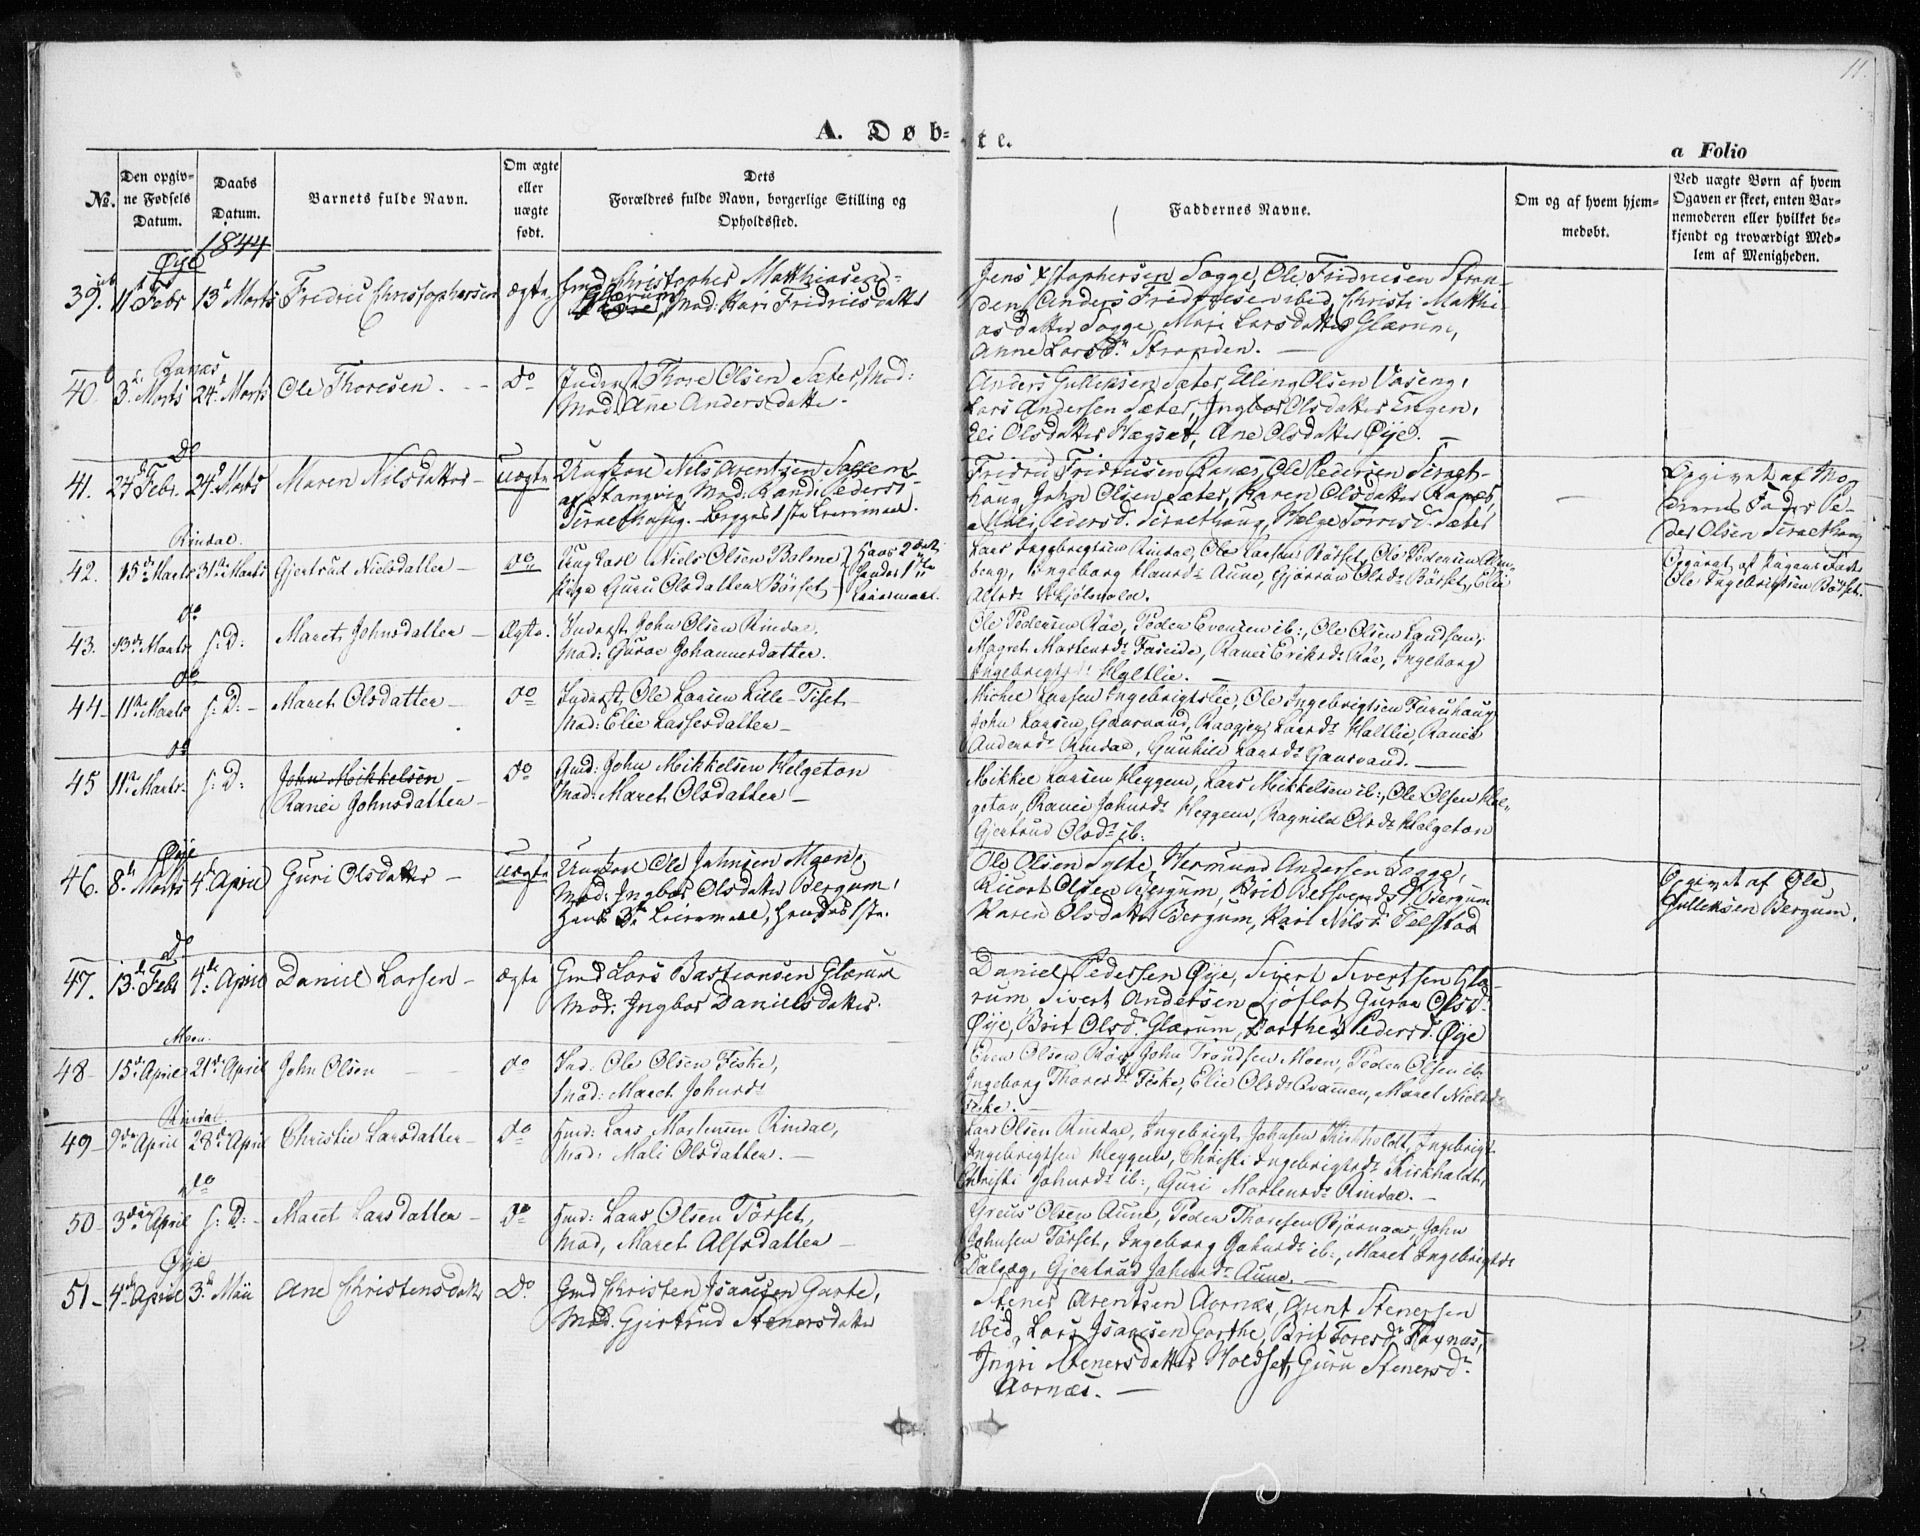 11.
A. Døb-
te.
a Folio
No.
Den opgiv-
ne Fødsels
Datum.
Daabs
Datum.
Barnets fulde Navn.
Om ægte
eller
uægte
født.
Dets
Forældres fulde Navn, borgerlige Stilling og
Opholdssted.
Faddernes Navne.
Om og af hvem hjem-
medøbt.
Ved uægte Børn af hvem
Opgaven er skeet, enten Bar-
nemoderen eller hvilket be-
kjendt og troværdigt Med-
lem af Menigheden.
1844
Øye
39. 11te Febr 13de Marts Fredric Christophersen ægte Gmd Christopher Matthiasen
Glærum, Mod: Kari Fridricsdatter
Jens Xstophersen Sogge, Ole Fridricsen Stran-
den, Anders Fridricsen ibid, Christi Matthi-
asdatter Sogge, Mari Larsdatter Glærum,
Anne Larsd. Stranden. —
Ranæs
40. 3de Marts 24de Marts Ole Thoresen. Do Inderst Thore Olsen Sæter, Mod:
Mod: Ane Andersdatter.
Anders Gulliksen Sæter, Elling Olsen Vaseng,
Lars Andersen Sæter, Ingbor Olsdatter Engen,
Eli Olsdatter Hægset, Ane Olsdatter Øye. —
Do
41. 24de Febr. 24de Marts Maren Nilsdatter — uægte Ungkarl Nils Arentsen
af Stangvig Mod: Randi Peders
Begges 1ste Leiermaal.
Fridric Fridricsen Ranæs, Ole Pedersen
haug, John Olsen Sæter, Karen Olsdatter Ranæs,
Mari Pedersd. Helge Torresd. Sæter
Opgivet af Mo-
derens Fader Pe-
der Olsen
Rindal.
42. 15de Marts 31te Marts Gjertrud Nielsdatter — do Ungkarl Niels Olsen Bolme
Pige Guru Olsdatter Börset
Hans 2det
Hendes 1ste
Leiermaal.
Lars Ingebrigtsen Rindal, Ole Larsen Börset, Ole Pedersen
berg, Ingeborg Hansd. Aune, Gjørrøn Olsd. Börset, Elie
Alfsd. Skjølsvold.
Opgivet af Pigens Fader
Ole Ingebrigtsen Börset.
do
43. 13de Marts s: D: Maret Johnsdatter — Ægte. Inderst John Olsen Rindal,
Mod: Guroe Johannesdatter.
Ole Pedersen Röe, Peder Evensen ib:, Ole Olsen Landsem,
Magret Mortensd. Fóseide, Ranei Eriksd. Röe, Ingeborg
Ingebrigtsd. Hyltlie. —
do
44 — 11te Marts s: D: — Maret Olsdatter — do Inderst Ole Larsen Lille-Tiset —
Mod: Elie Lassesdatter —
Michel Larsen Ingebrigtslie, Ole Ingebrigtsen Furuhaug
John Larsen, Gaasvand, Larsd. Haltlie, Ranei
Andersd. Rindal, Gunhild Larsd. Gaasvand. —
do
45 11te Marts s: D: John Mikkelsen —
Ranei Johnsdatter — do Gmd: John Mikkelsen Helgeton
Mod: Maret Olsdatter —
Mikkel Larsen Heggem, Lars Mikkelsen ib:, Ole Olsen Hel-
geton, Ranei Johnsd. Heggem, Ragnild Olsd. Helgeton
Gjertrud Olsd. ib:
Øye
46. 8de Marts 4de April Guri Olsdatter — uægte Ungkarl Ole Johnsen Moen,
Mod: Ingbor Olsdatter Bergum,
Hans 3de Leiermaal, Hendes 1ste.
Ole Olsen Sylte, Hermund Andersen Sogge,
Olsen Bergum, Brit Bergum
Karen Olsdatter Bergum, Kari Nilsd. Telstad
Opgivet af Ole
Gulleksen Bergum.
Do
47. 13de Febr 4de April Daniel Larsen — ægte Gmd Lars Bastiansen Glærum
Mod: Ingbor Danielsdatter.
Daniel Pedersen Øye, Sivert Sivertsen Glæ-
rum Sivert Andersen Sjøflot, Guroe Olsd.
Øye, Brit Olsd. Glærum, Dorthe Pedersd. Øye
Moen.
48 — 15de April 21de April John Olsen — do Ind: Ole Olsen Fiske,
Mod: Maret Johnsd.
Even Olsen John Trondsen Moen, Peder Olsen ib:
Ingeborg Thoresd. Fiske, Elie Olsd. Maret Nielsd.
Fiske. —
Rindal
49 — 9de April 28de April Christie Larsdatter — do Gmd: Lars Mortensen Rindal,
Mod: Mali Olsdatter. —
Lars Olsen Rindal, Ingebrigt Johnsen Kirkholdt, Ingebrigt
Ingebrigtsen Heggem, Christi Ingebrigtsd. Kirkholdt,
Christi Johnsd. ib:, Guri Mortensd. Rindal. —
do
50 — 3die April s: D: — Maret Larsdatter — do Gmd: Lars Olsen Törset,
Mod, Maret Alfsdatter —
Olsen Aune, Peder Thoresen Bjørnaas, John
Johnsen Törset, Ingeborg Johnsd. ib:, Maret Ingebrigtsd.
Dalsæg, Gjertrud Johnsd. Aune. —
Øye
51 — 4de April 3de Maii Ane Christensdatter Do. Gmd Christen Isaacsen Garte,
Mod: Gjertrud Stenersdatter
Stener Arentsen Aarnæs, Arent Stenersen
ibid, Lars Isaacsen Garthe, Brit Toresd.
Ingri Stenersdatter Holdset, Guru Stenersd.
Aarnæs. —